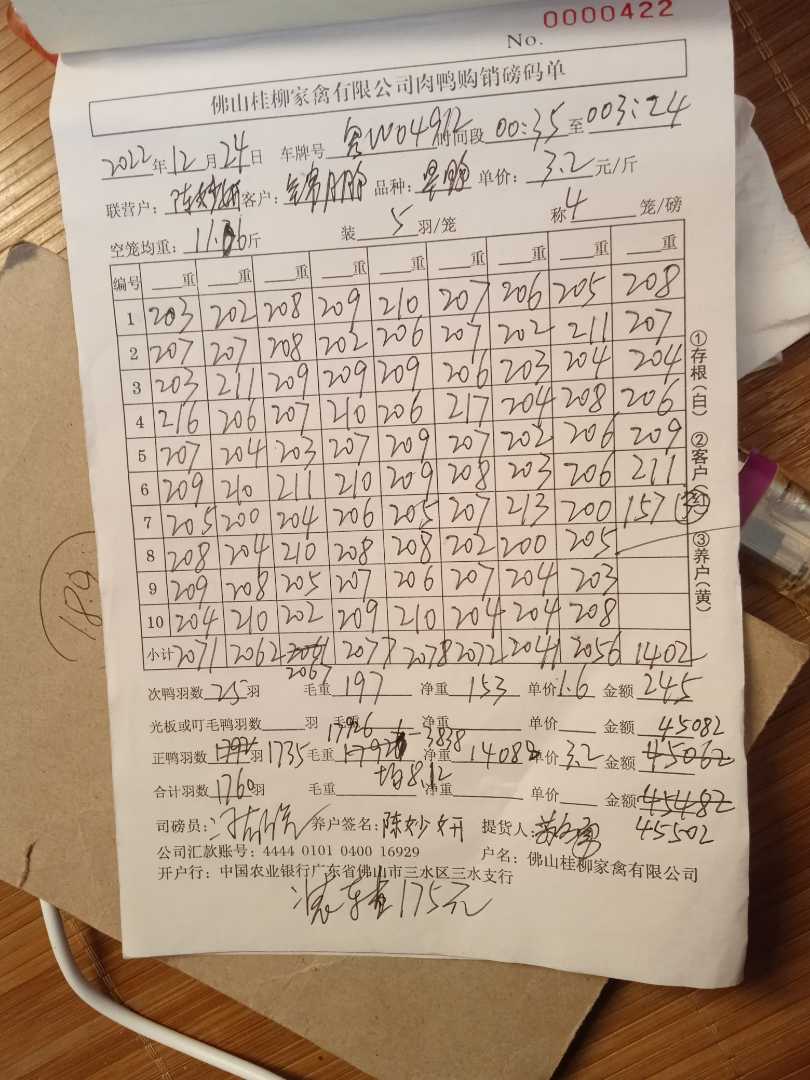 0000422
No.
佛山桂柳家禽有限公司肉鸭购销磅码单
2022年12月24日 车牌号 粤W04912 时间段 00:35 至 003:24
联营户: 陈妙妍 客户: 品种: 单价: 3.2 元/斤
空笼均重: 斤 装 5 羽/笼 称 4 笼/磅
编号 重 重 重 重 重 重 重 重 重
1 203 202 208 209 210 207 206 205 208
2 207 207 208 202 206 207 202 211 207
3 203 211 209 209 209 206 203 204 204
4 216 206 207 210 206 217 204 208 206
5 207 204 203 207 209 207 202 206 209
6 209 210 211 210 209 208 203 206 211
7 205 200 204 206 205 207 213 200 157
8 208 204 210 208 208 202 200 205
9 209 208 205 207 206 207 204 203
10 204 210 202 209 210 204 204 208
小计 2071 2062 2061 2077 2078 2072 2041 2056 1402
2067
次鸭羽数 25 羽 毛重 197 净重 153 单价 1.6 金额 245
光板或叮毛鸭羽数 羽 毛重 净重 单价 金额 45082
17926 - 3838
正鸭羽数 1792 羽 1735 毛重 17926 净重 14088 单价 3.2 金额 45062
均8.12
合计羽数 1760 羽 毛重 净重 单价 金额 45482
司磅员: 养户签名: 陈妙妍 提货人: 45502
公司汇款账号: 4444 0101 0400 16929 户名: 佛山桂柳家禽有限公司
开户行: 中国农业银行广东省佛山市三水区三水支行
175元
①存根(白) ②客户(红) ③养户(黄)
18.9